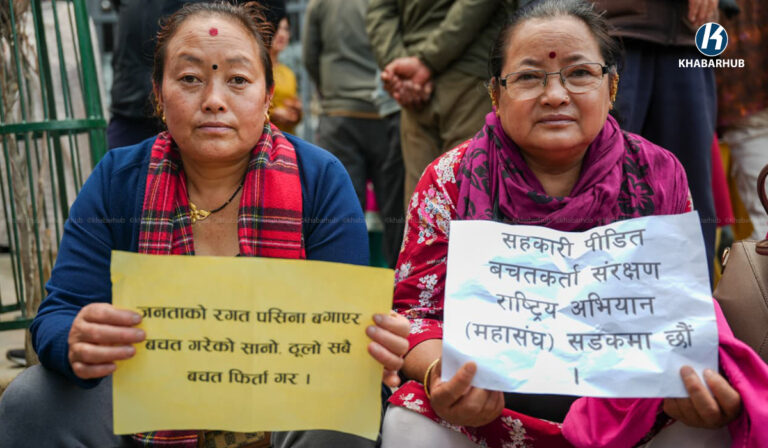 KHABARHUB
जनताको रगत पसिना बगाएर
बचत गरेको सानो, ठूलो सबै
बचत फिर्ता गर ।
सहकारी पीडित
बचतकर्ता संरक्षण
राष्ट्रिय अभियान
(महासंघ) सडकमा छौं
।